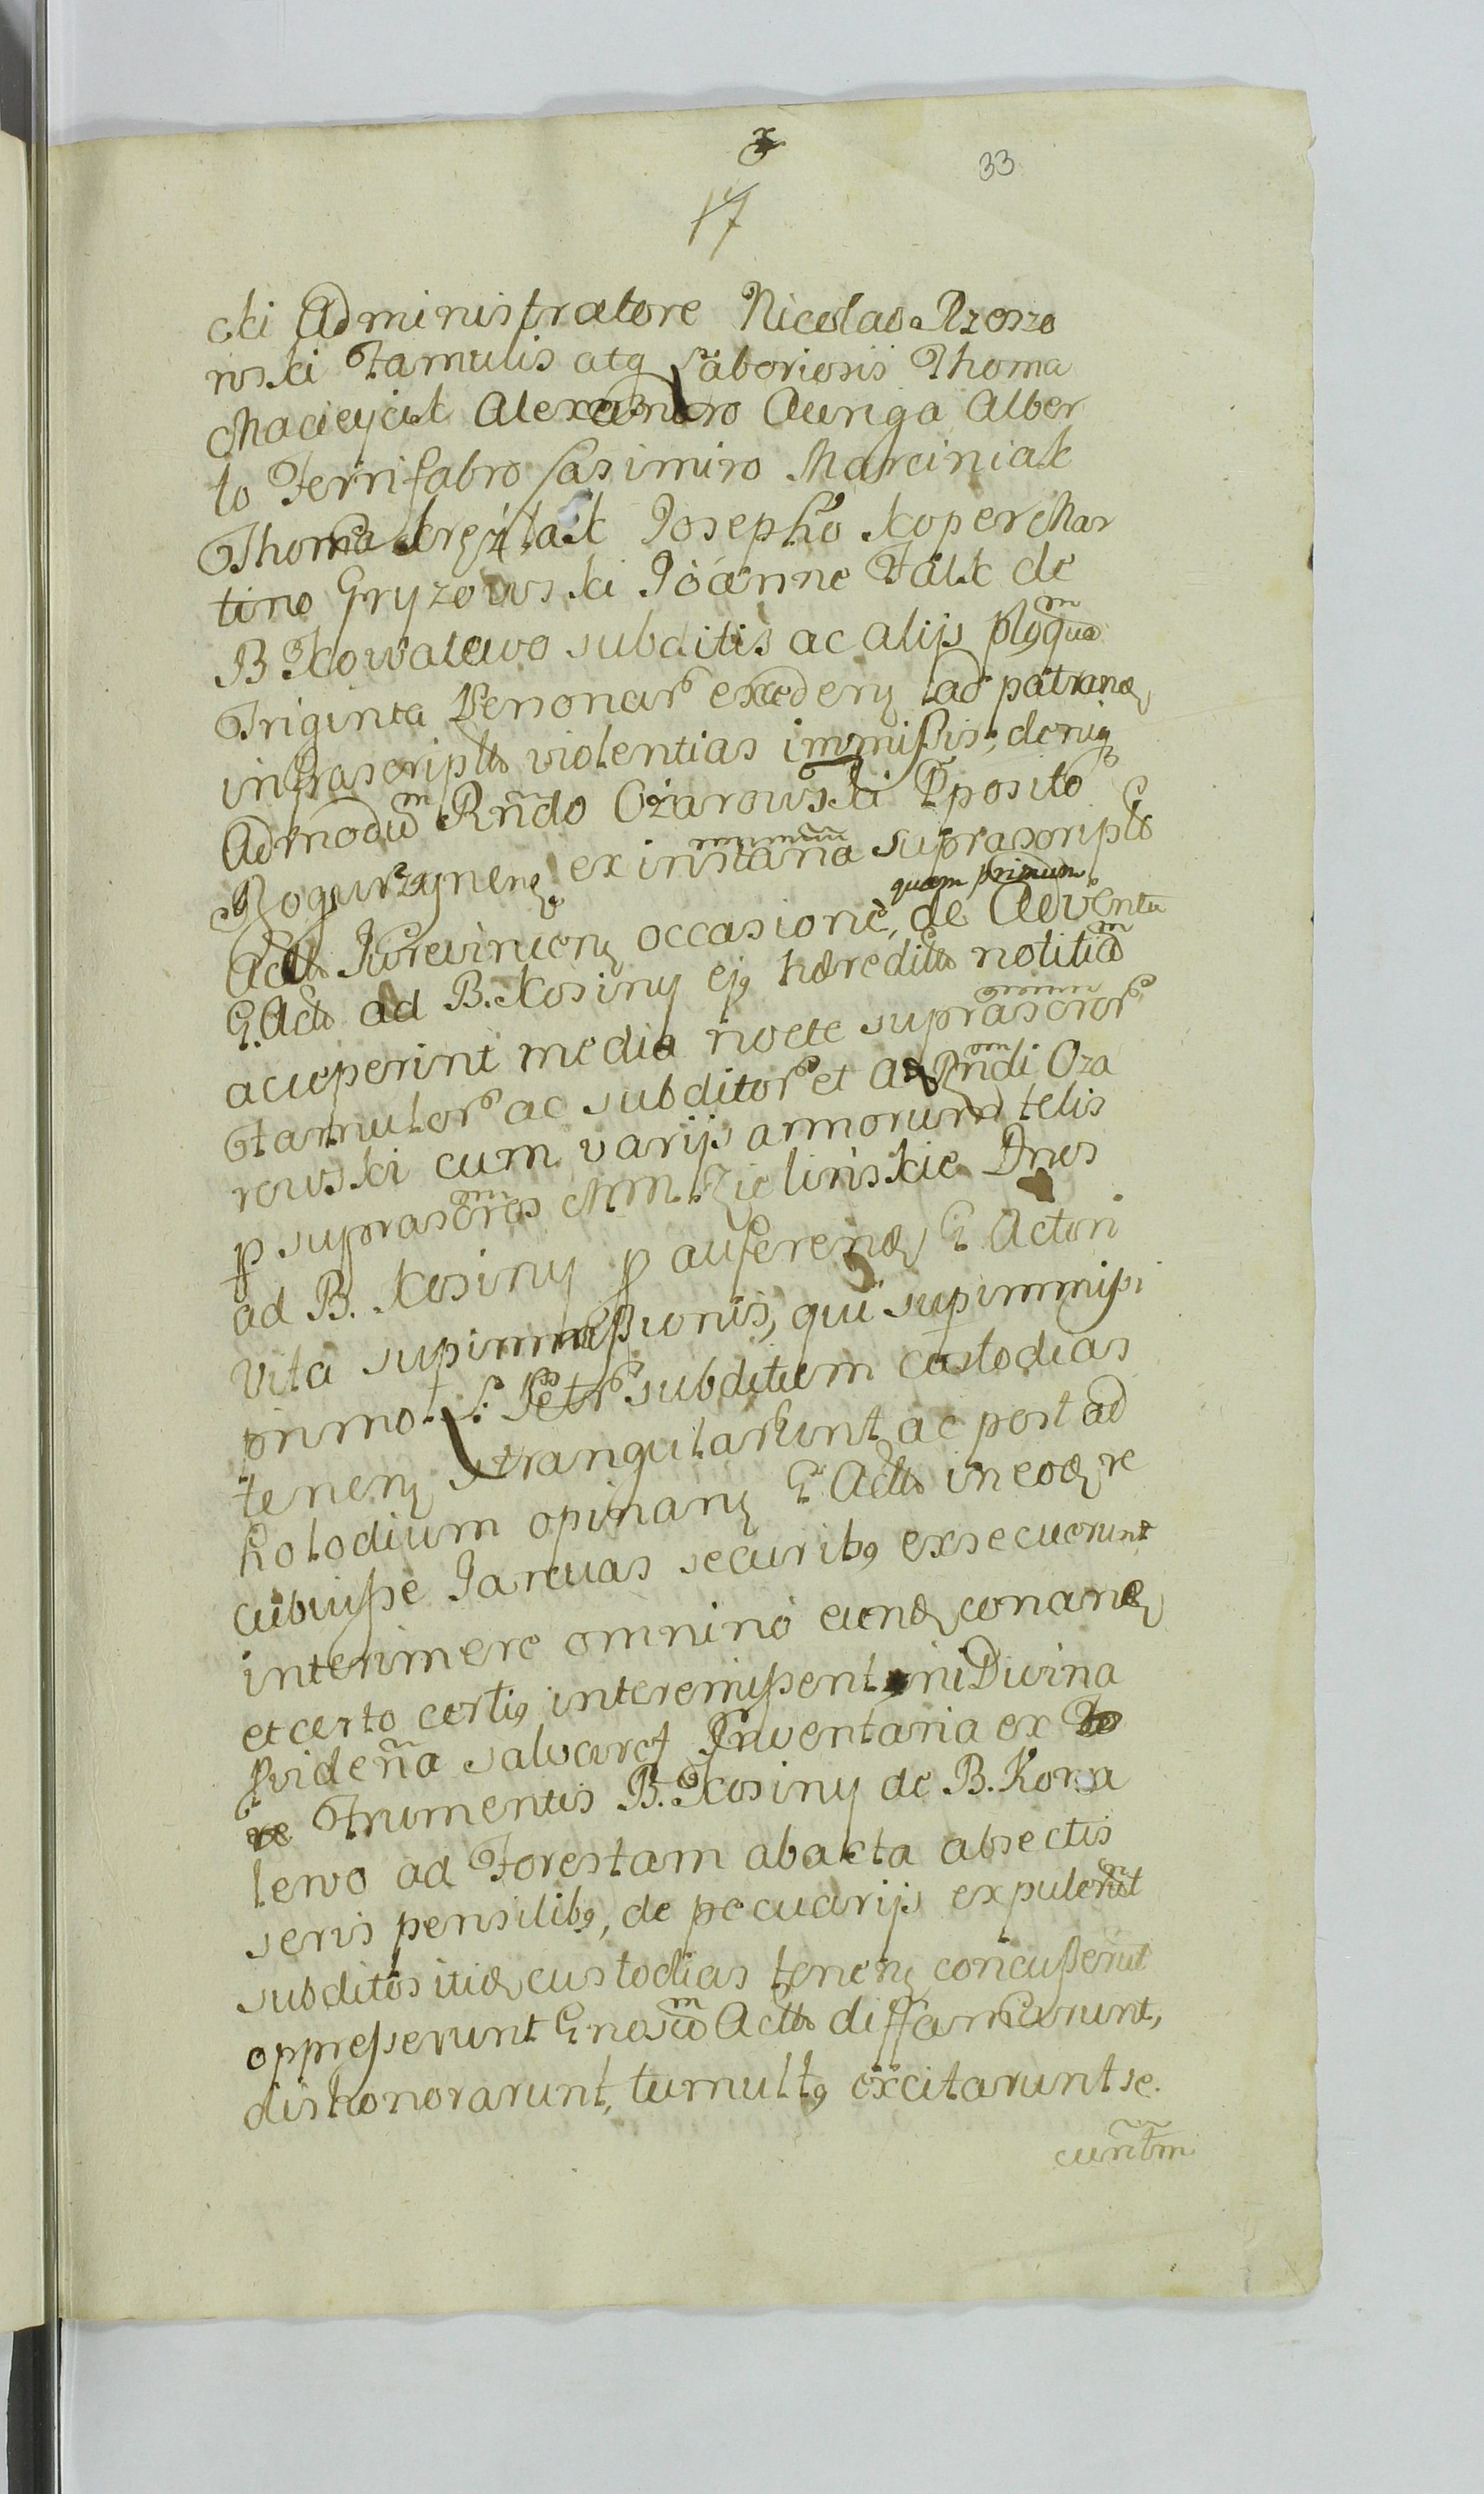 33
17
cki Administratore Nicolao Rzoszo
wski Famulis atq Laboriosis Thoma
Macieycik Alexandro Auriga Alber
to Ferrifabro Casimiro Marciniak
Thoma Krężlak Josepho Koper Mar
tino Gryzowski Joanne Falk de
B Kowalewo subditis ac alijs plq̃ qua
Triginta Personar excedeny ad patrand
infrascriptts violentias immissis, deniq
Admodũ Rndo Ożarowski Pposito
Rogurzynenę ex instana suprascripts
quam primum
Actts Jurevinceny occasione, de Adventu
G. Actts ad B. Kosiny ejq hæreditts notitiã
acceperint media nocte suprascror
Famulor ac subditor et Ad Rndi Oza
rowski cum varijs armorum telis
p suprascros MM. Zielińskie Dnos
ad B. Kosiny p auferend G Actori
vita supimmissionis, qui supimmissi
primo L. Petr subditum custodias
teneny strangularunt ac post ad
holodium opinany G Actts in eod re
cubuisse Januas securibq exsecuerunt
interimere omnino eund conand
et certo certiq interemissent, ni Divina
Pvidena salvaret Inventaria ex
Frumentis B. Kosiny de B. Kowa
lewo ad Forestam abacta absectis
seris pensilibq, de pecuarijs expulerut
subditos itid custodias teneny concusserut
oppresserunt Gnosũ Actts diffamarunt,
dishonorarunt, tumultq excitarunt se.
cundm